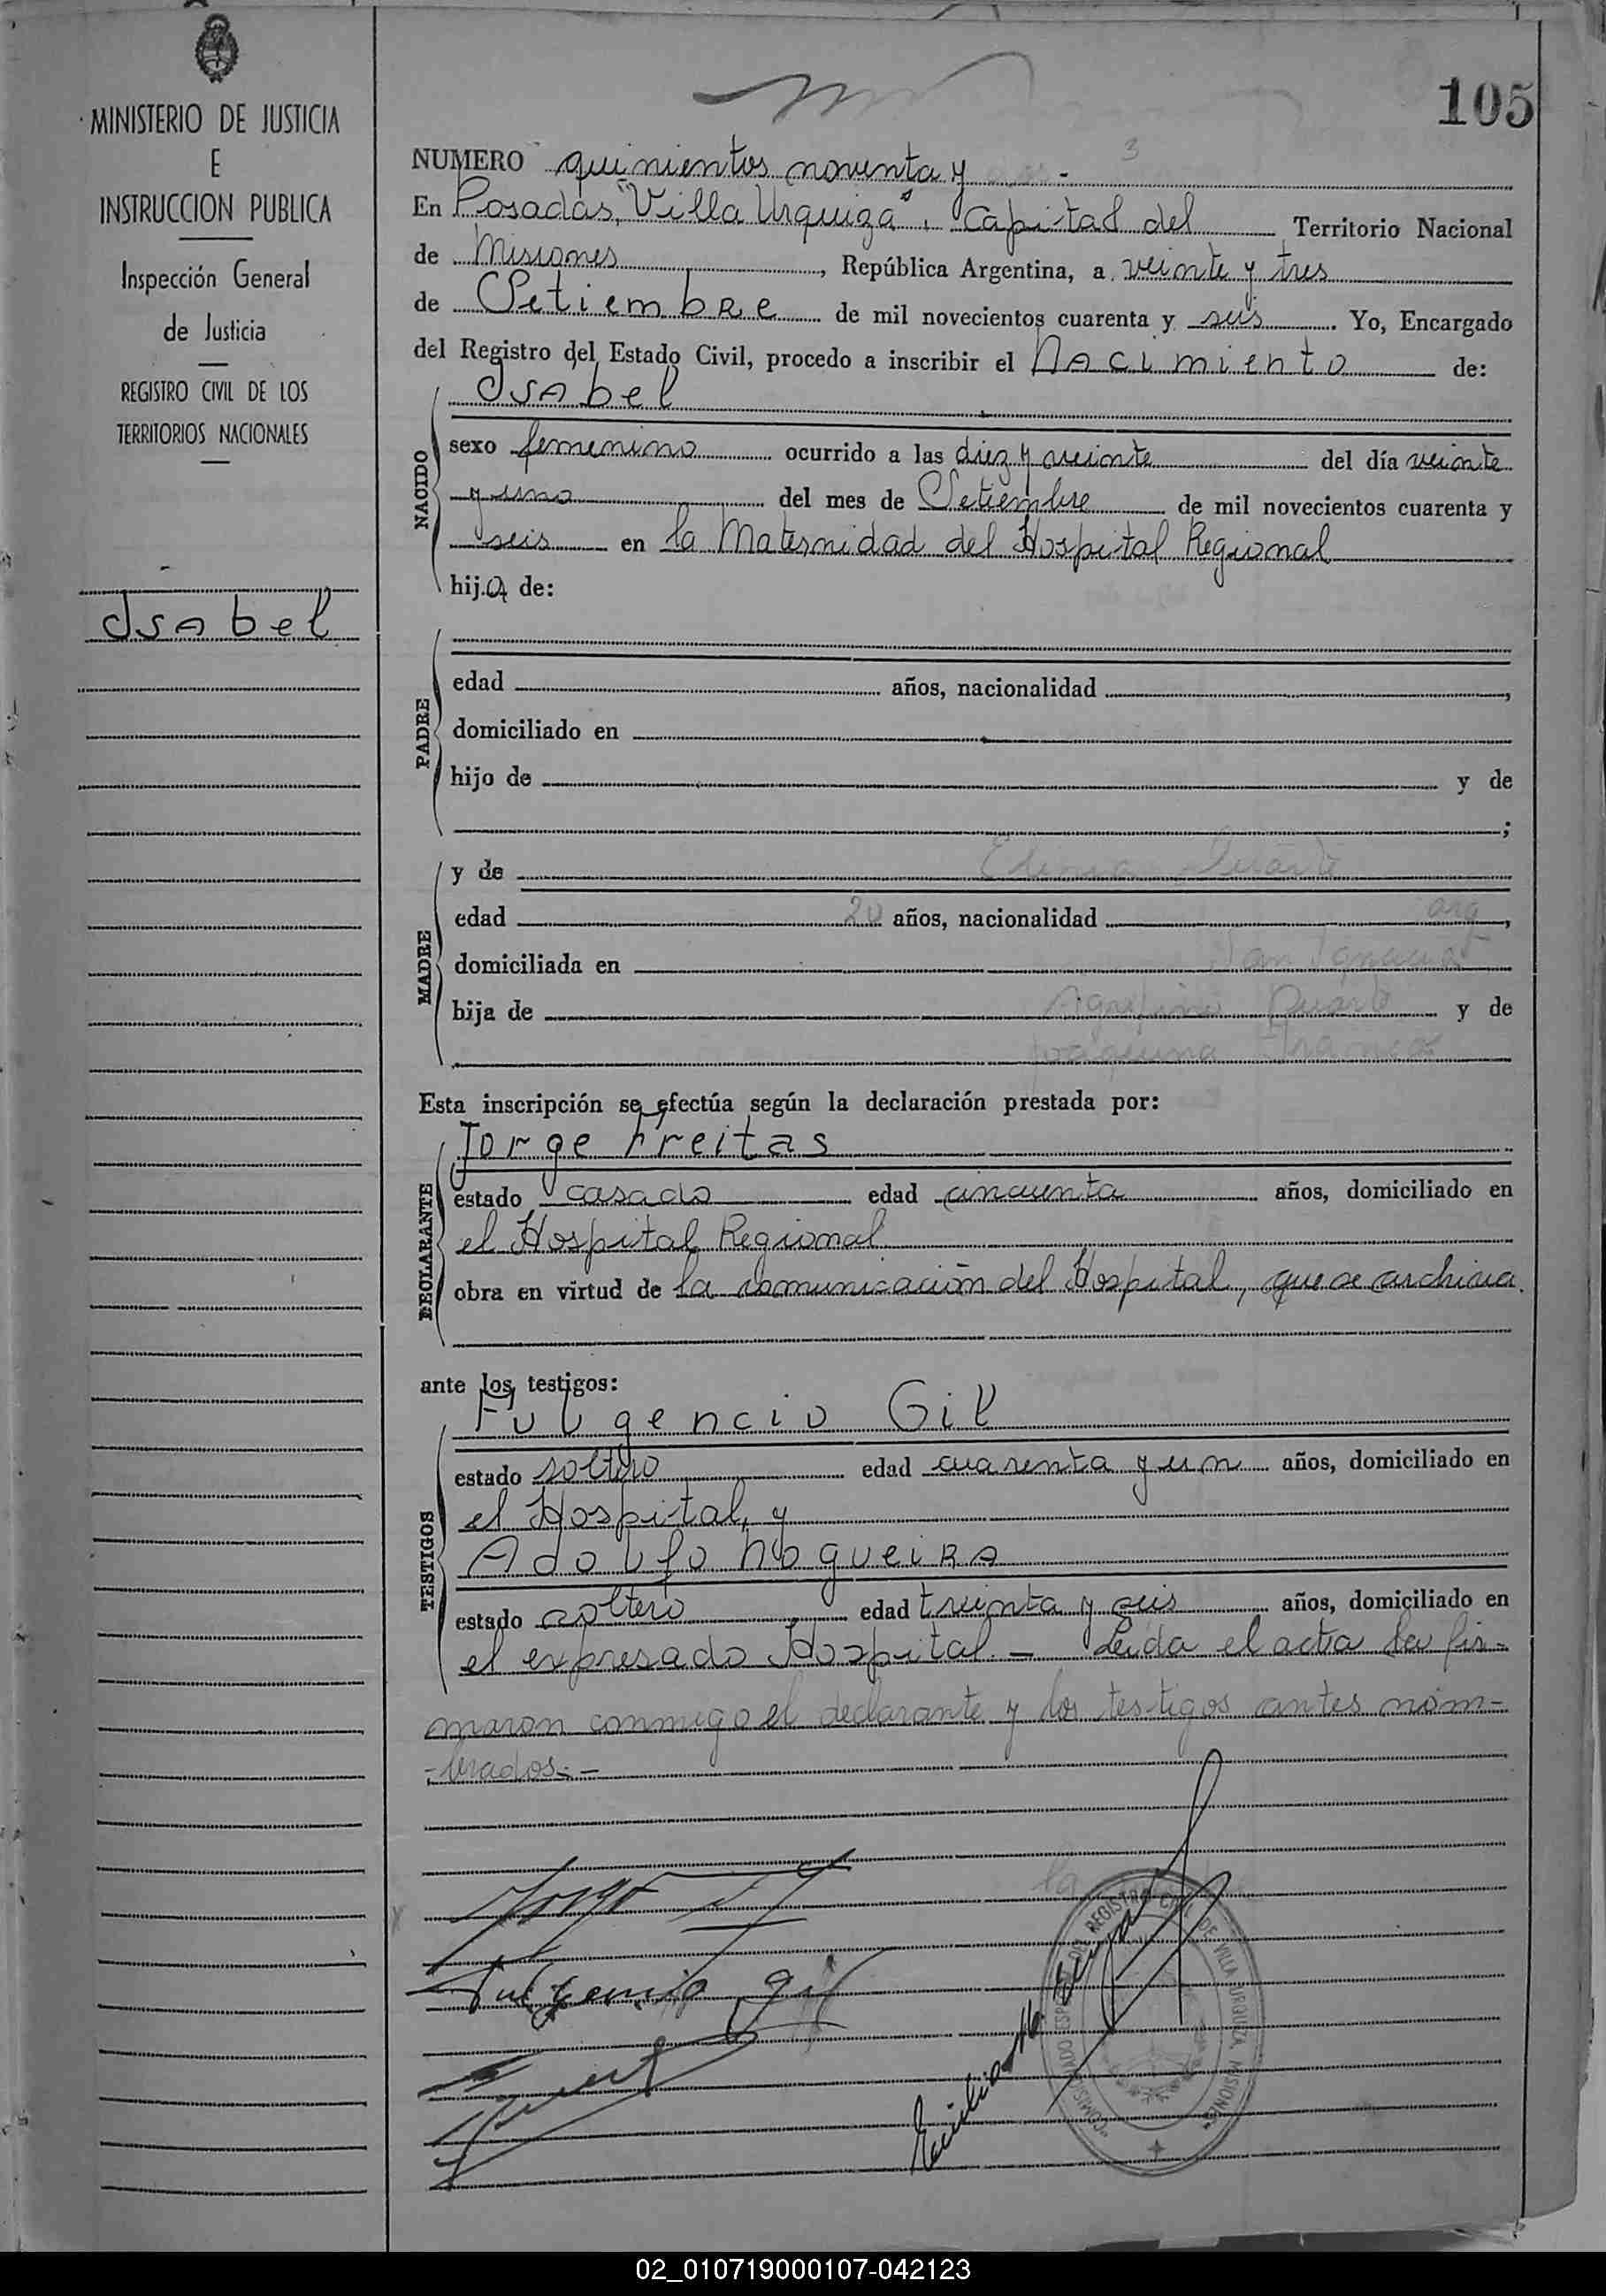 MINISTERIO DE JUSTICIA
E
INSTRUCCION PUBLICA
Inspección General
de Justicia
REGISTRO CIVIL DE LOS
TERRITORIOS NACIONALES
Isabel
105
NUMERO quinientos noventa y 3
En Posadas, "Villa Urquiza", Capital del Territorio Nacional
de Misiones, República Argentina, a veinte y tres
de Setiembre de mil novecientos cuarenta y seis. Yo, Encargado
del Registro del Estado Civil, procedo a inscribir el Nacimiento de:
NACIDO
Isabel
sexo femenino ocurrido a las diez y veinte del día veinte
y uno del mes de Setiembre de mil novecientos cuarenta y
seis en la Maternidad del Hospital Regional
hija de:
PADRE
edad años, nacionalidad ,
domiciliado en
hijo de y de
;
MADRE
y de
edad 20 años, nacionalidad arg,
domiciliada en San Ignacio
hija de Agripino Duarte y de
Franco
Esta inscripción se efectúa según la declaración prestada por:
DECLARANTE
Jorge Freitas
estado casado edad cincuenta años, domiciliado en
el Hospital Regional
obra en virtud de la comunicación del Hospital, que se archiva.
ante los testigos:
TESTIGOS
Fulgencio Gil
estado soltero edad cuarenta y un años, domiciliado en
el Hospital, y
Adolfo Nogueira
estado soltero edad treinta y seis años, domiciliado en
el expresado Hospital. - Leida el acta la fir-
maron conmigo el declarante y los testigos antes nom-
-brados.-
Fulgencio Gil
REGISTRO CIVIL DE VILLA URQUIZA MISIONES
02_010719000107-042123